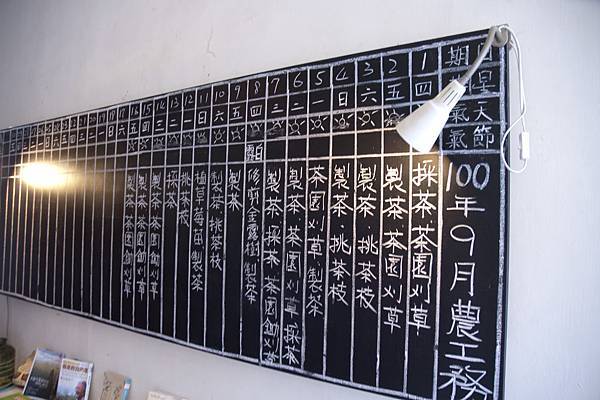 100年9月農工務
日期
星期
天氣
節氣
1 四 採茶 茶園刈草
2 五 製茶 茶園刈草
3 六 製茶·挑茶枝
4 日 製茶·挑茶枝
5 一 茶園刈草·製茶
6 二 製茶 茶園刈草 採茶
7 三 製茶 採茶 茶園鋤刈草
8 四 白露 修剪金露樹 製茶
9 五 製茶
10 六 製茶 挑茶枝
11 日 植草莓苗 製茶
12 一 挑茶枝
13 二 採茶
14 三 製茶 茶園鋤刈草
15 四 製茶 茶園鋤刈草
16 五 製茶 茶園鋤刈草
17 六